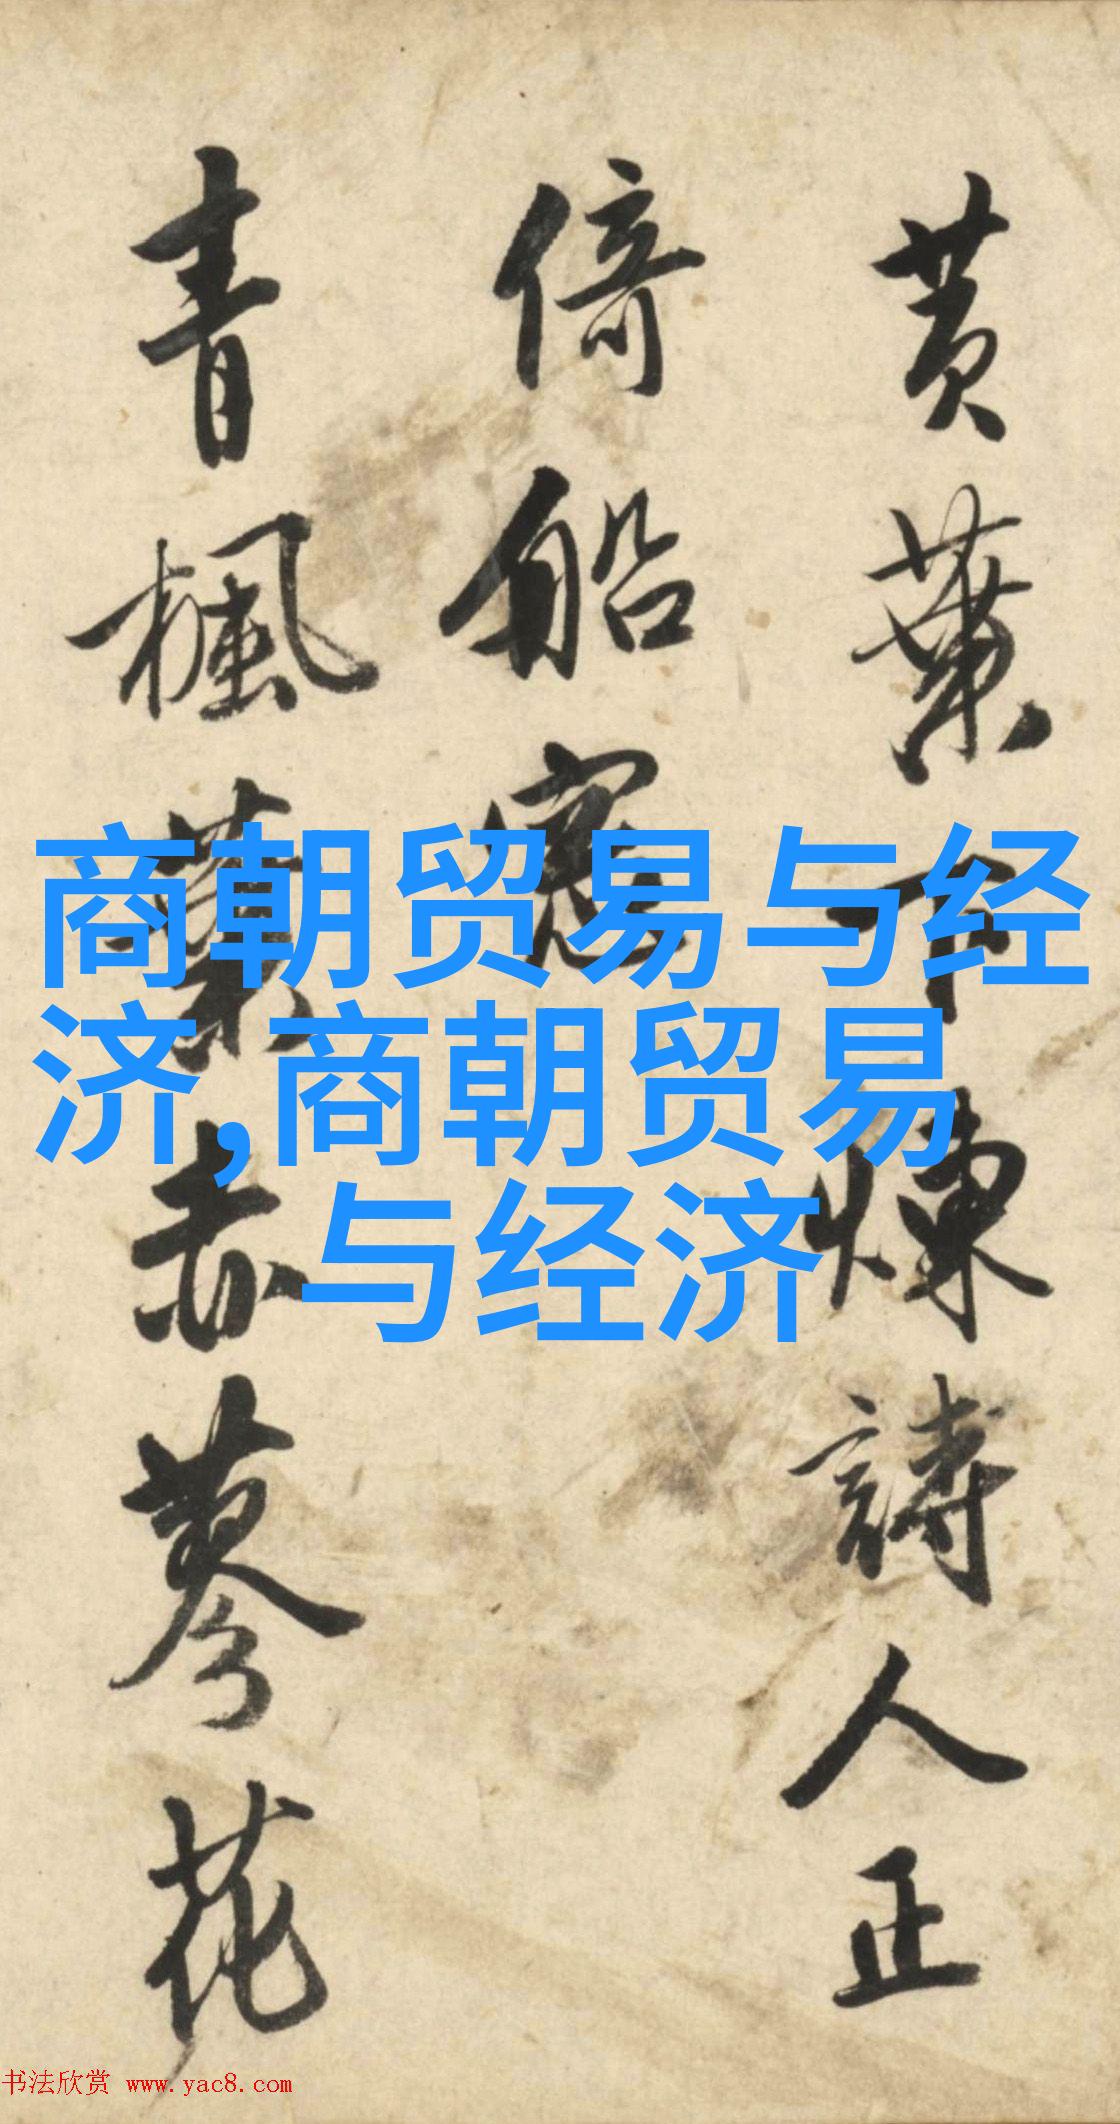 商朝贸易与经
济,商朝贸易
与经济
黄葉下煉詩人正
倚船窓
青楓葉赤蓼花
书法欣赏 www.yac8.com